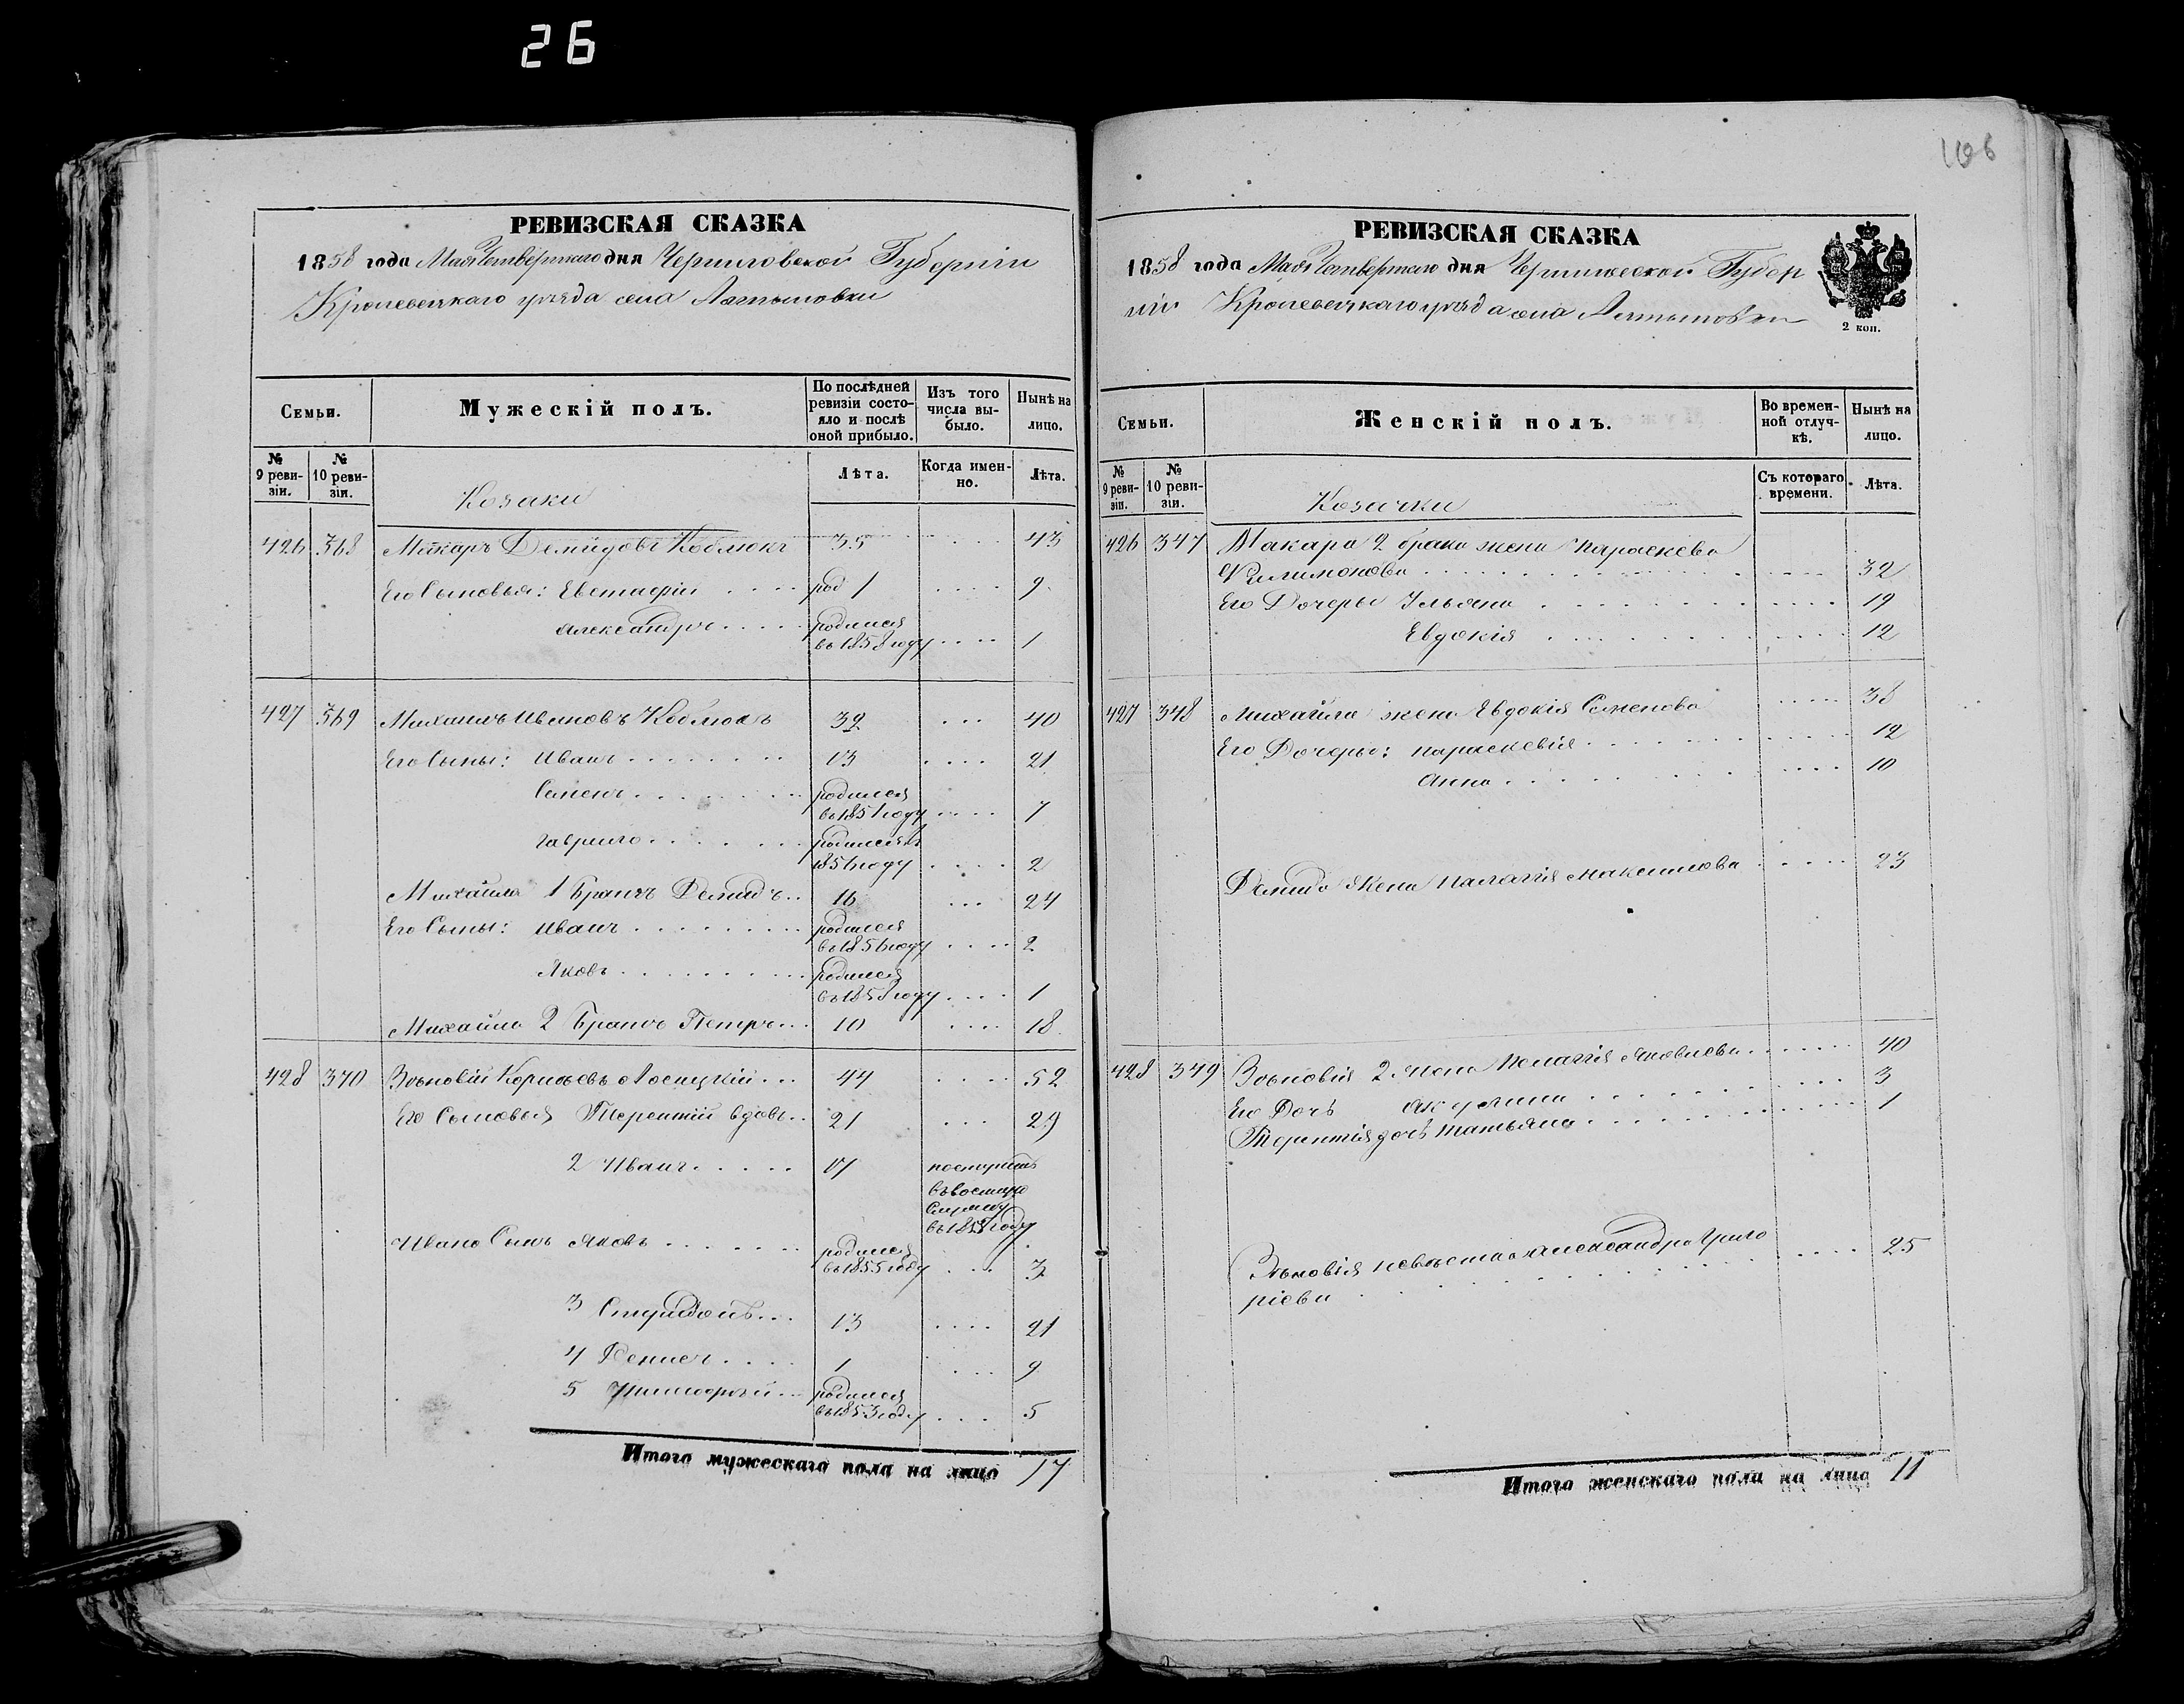 26
106
РЕВИЗСКАЯ СКАЗКА
1858 года Мая Четвертаго дня Черниговской Губерніи
Кролевецкаго уезда села
Семьи.
Мужескій полъ.
По послѣдней ревизіи состояло и послѣ оной прибыло.
Изъ того числа выбыло.
Нынѣ на лицо.
№ 9 ревизіи.
№ 10 ревизіи.
Козаки
Лѣта.
Когда именно.
Лѣта.
426 368 Макаръ Демидовъ Коблюкъ 35 43
Его Сыновья: Евстафій род 1 9
Александръ родился
въ 1858 году 1
427 369 Михаилъ Ивановъ Коблюкъ 32 40
Его Сыны: Иванъ 13 21
Семенъ родился
въ 1851 году 7
Гаврило родился въ
1856 году 2
Михайла 1 Братъ Демидъ 16 24
Его Сыны: Иванъ родился
въ 1856 году 2
Яковъ родился
въ 1858 году 1
Михайла 2 Братъ Петръ 10 18
428 370 Зѣновій Корнѣевъ Лосицкій 44 52
Его Сыновья Терентій вдовъ 21 29
2 Иванъ 17 поступилъ
въ
службу
въ 1855 году
Ивана Сынъ Яковъ родился
въ 1855 году 3
3 Спиридонъ 13 21
4 Денисъ 1 9
5 родился
въ 1853 году 5
Итого мужескаго пола на лицо 17
РЕВИЗСКАЯ СКАЗКА
1858 года Мая Четвертаго дня Черниговской Губер
ніи Кролевецкаго уезда села
2 коп.
Семьи.
Женскій полъ.
Во временной отлучкѣ.
Нынѣ на лицо.
№ 9 ревизіи.
№ 10 ревизіи.
Козачки
Съ котораго времени.
Лѣта.
426 347 Макара 2 брака жена Параскева
Филимонова 32
Его Дочеры Ульяна 19
Евдокія 12
427 348 Михайла жена Евдокія Семенова 38
Его Дочеры: Параскевія 12
Анна 10
Демида жена Палагія Максимова 23
428 349 Зѣновія 2 жена Пелагія Яковлева 40
Его Дочь Акулина 3
Терентія дочь Татьяна 1
Зѣновія невѣстка Александра Григо
ріева 25
Итого женскаго пола на лицо 11